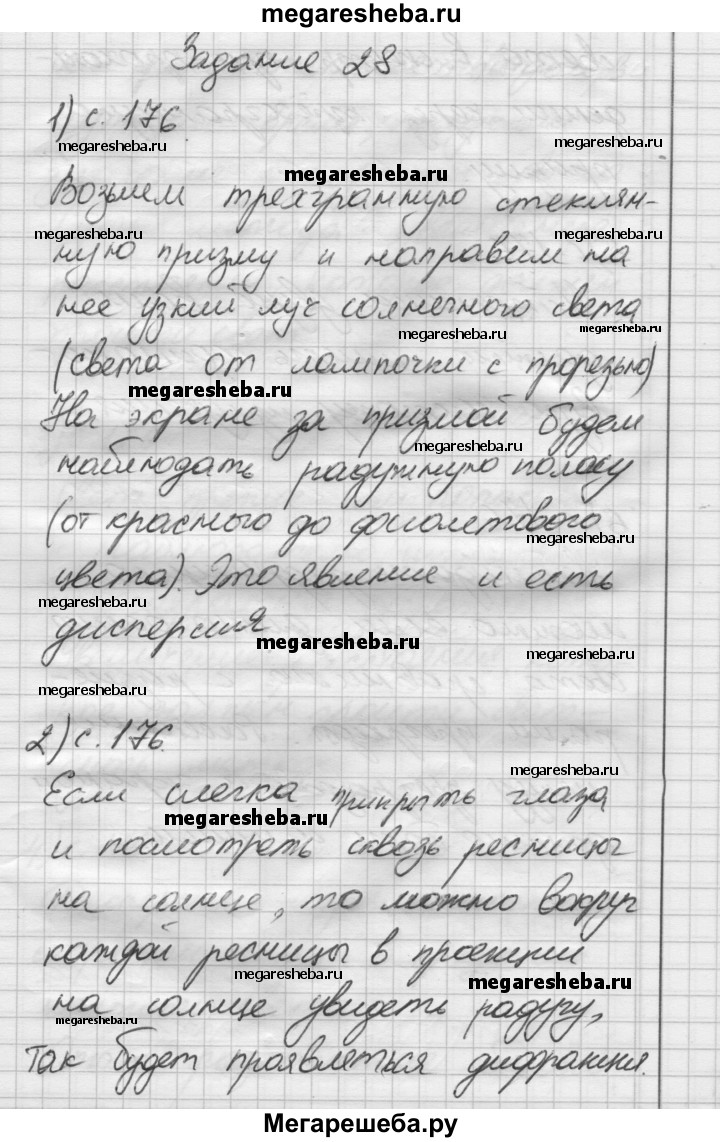 megaresheba.ru
Задание 28
1) с. 176
megaresheba.ru
megaresheba.ru
megaresheba.ru
Возьмем трехгранную стеклян-
megaresheba.ru
megaresheba.ru
ную призму и направим на
нее узкий луч солнечного света
megaresheba.ru
megaresheba.ru
(света от лампочки с прорезью)
megaresheba.ru
На экране за призмой будем
megaresheba.ru
наблюдать радужную полосу
(от красного до фиолетового
megaresheba.ru
цвета). Это явление и есть
megaresheba.ru
дисперсия
megaresheba.ru
megaresheba.ru
megaresheba.ru
2) с. 176.
megaresheba.ru
Если слегка прикрыть глаза
megaresheba.ru
и посмотреть сквозь ресницы
на солнце, то можно вокруг
каждой ресницы в проекции
megaresheba.ru
megaresheba.ru
на солнце увидеть радугу,
megaresheba.ru
так будет проявляться дифракция.
Мегарешеба.ру